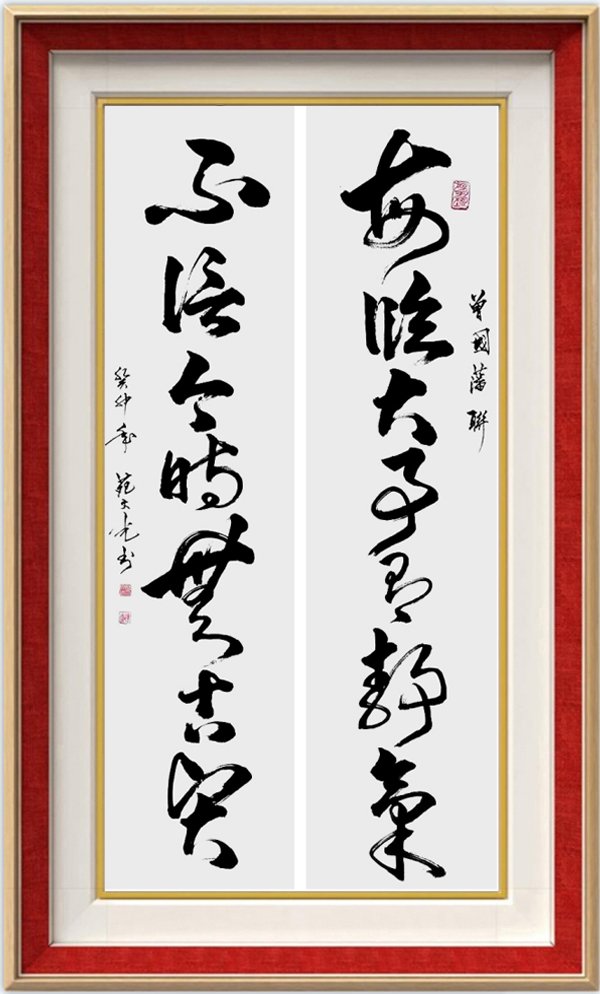 曾國藩聯
每臨大事有靜氣
不信今時無古賢
癸卯年 范大光书